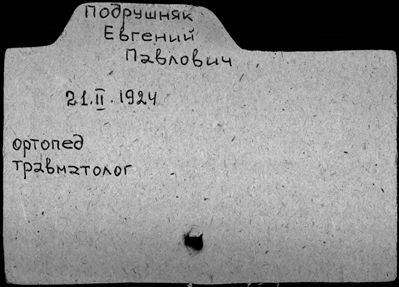 Подрушняк
Евгений
Павлович
21.II.1924
ортопед
травматолог